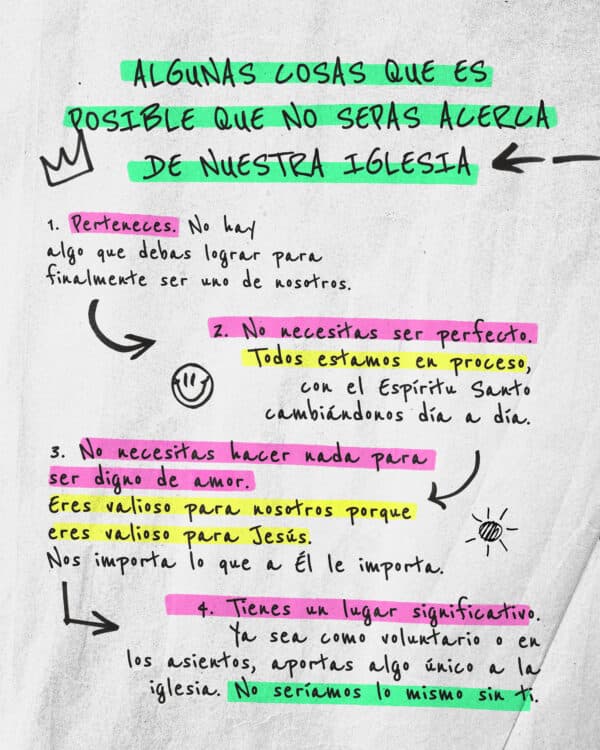 ALGUNAS COSAS QUE ES
POSIBLE QUE NO SEPAS ACERCA
DE NUESTRA IGLESIA
1. Perteneces. No hay
algo que debas lograr para
finalmente ser uno de nosotros.
2. No necesitas ser perfecto.
Todos estamos en proceso,
con el Espíritu Santo
cambiándonos día a día.
3. No necesitas hacer nada para
ser digno de amor.
Eres valioso para nosotros porque
eres valioso para Jesús.
Nos importa lo que a Él le importa.
4. Tienes un lugar significativo.
Ya sea como voluntario o en
los asientos, aportas algo único a la
iglesia. No seríamos lo mismo sin ti.